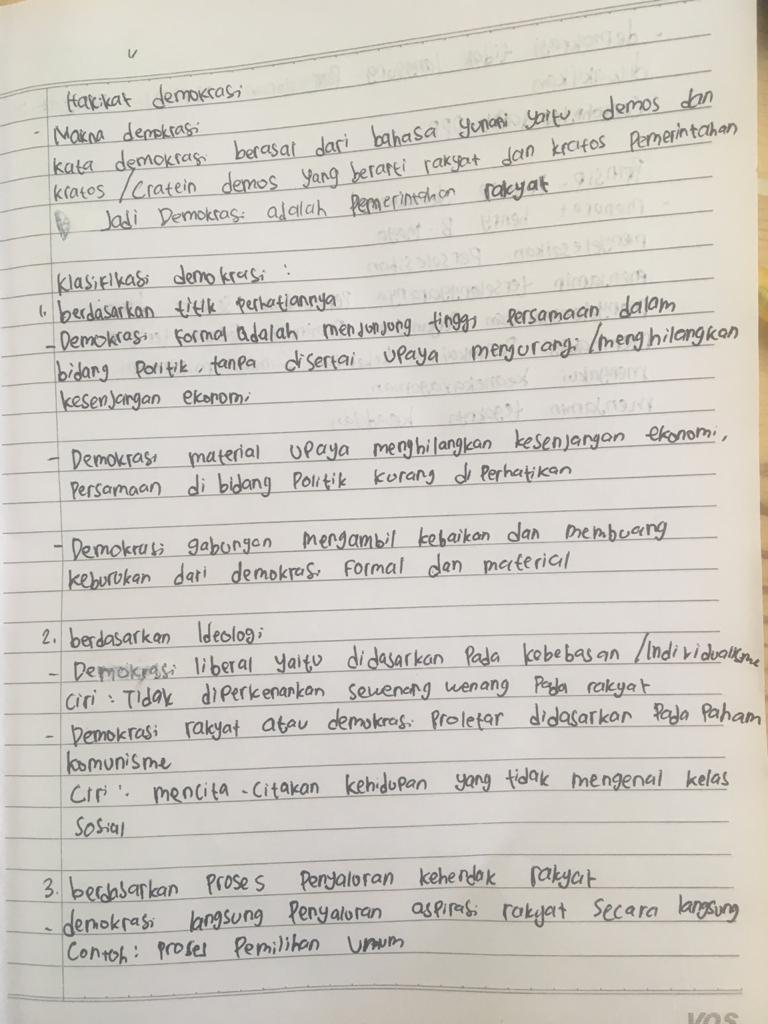 Hakikat demokrasi
- Makna demokrasi
kata demokrasi berasal dari bahasa yunani yaitu demos dan
kratos /Cratein demos yang berarti rakyat dan kratos Pemerintahan
Jadi Demokrasi adalah Pemerintahan rakyat
Klasifikasi demokrasi :
1. berdasarkan titik perhatiannya
- Demokrasi formal adalah menjunjung tinggi Persamaan dalam
bidang Politik, tanpa disertai upaya mengurangi /menghilangkan
kesenjangan ekonomi
- Demokrasi material upaya menghilangkan kesenjangan ekonomi,
Persamaan di bidang Politik kurang di Perhatikan
- Demokrasi gabungan mengambil kebaikan dan membuang
keburukan dari demokrasi formal dan material
2. berdasarkan Ideologi
- Demokrasi liberal yaitu didasarkan Pada kebebasan /Individualisme
Ciri : Tidak diperkenankan sewenang wenang Pada rakyat
- Demokrasi rakyat atau demokrasi Proletar didasarkan Pada Paham
komunisme
Ciri : mencita - Citakan kehidupan yang tidak mengenal kelas
Sosial
3. berdasarkan Proses Penyaluran kehendak rakyat
- demokrasi langsung Penyaluran aspirasi rakyat Secara langsung
Contoh : Proses Pemilihan Umum